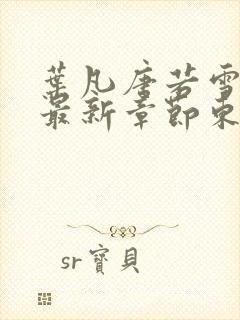 葉凡唐若雪
最新章節東
sr寶貝